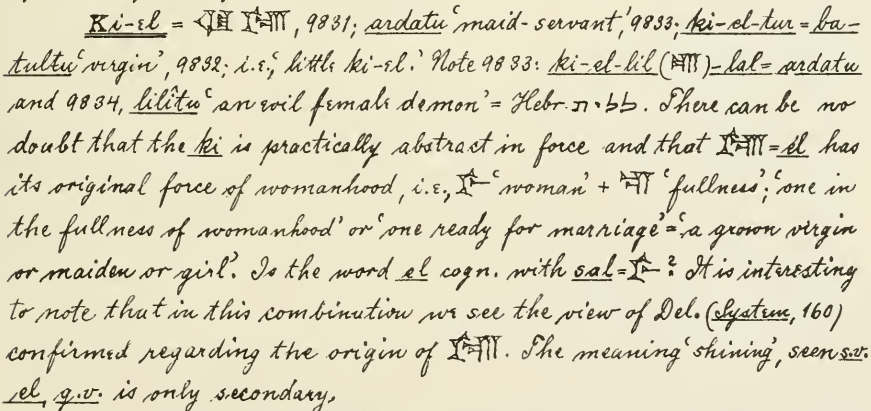 Ki-el = 𒆠 𒂖, 9831; ardatu ‘maid-servant,’ 9833; ki-el-tur = ba-
tultu ‘virgin’, 9832; i.e., ‘little ki-el.’ Note 9833: ki-el-lil (𒆤)-lal = ardatu
and 9834, lilîtu ‘an evil female demon’ = Hebr. לילית. There can be no
doubt that the ki is practically abstract in force and that 𒂖 = él has
its original force of womanhood, i.e., 𒊩 ‘woman’ + 𒆤 ‘fullness’; ‘one in
the fullness of womanhood’ or ‘one ready for marriage’ = ‘a grown virgin
or maiden or girl’. Is the word el cogn. with sal = 𒊩? It is interesting
to note that in this combination we see the view of Del. (System, 160)
confirmed regarding the origin of 𒂖. The meaning ‘shining’, seen s.v.
el, q.v. is only secondary.